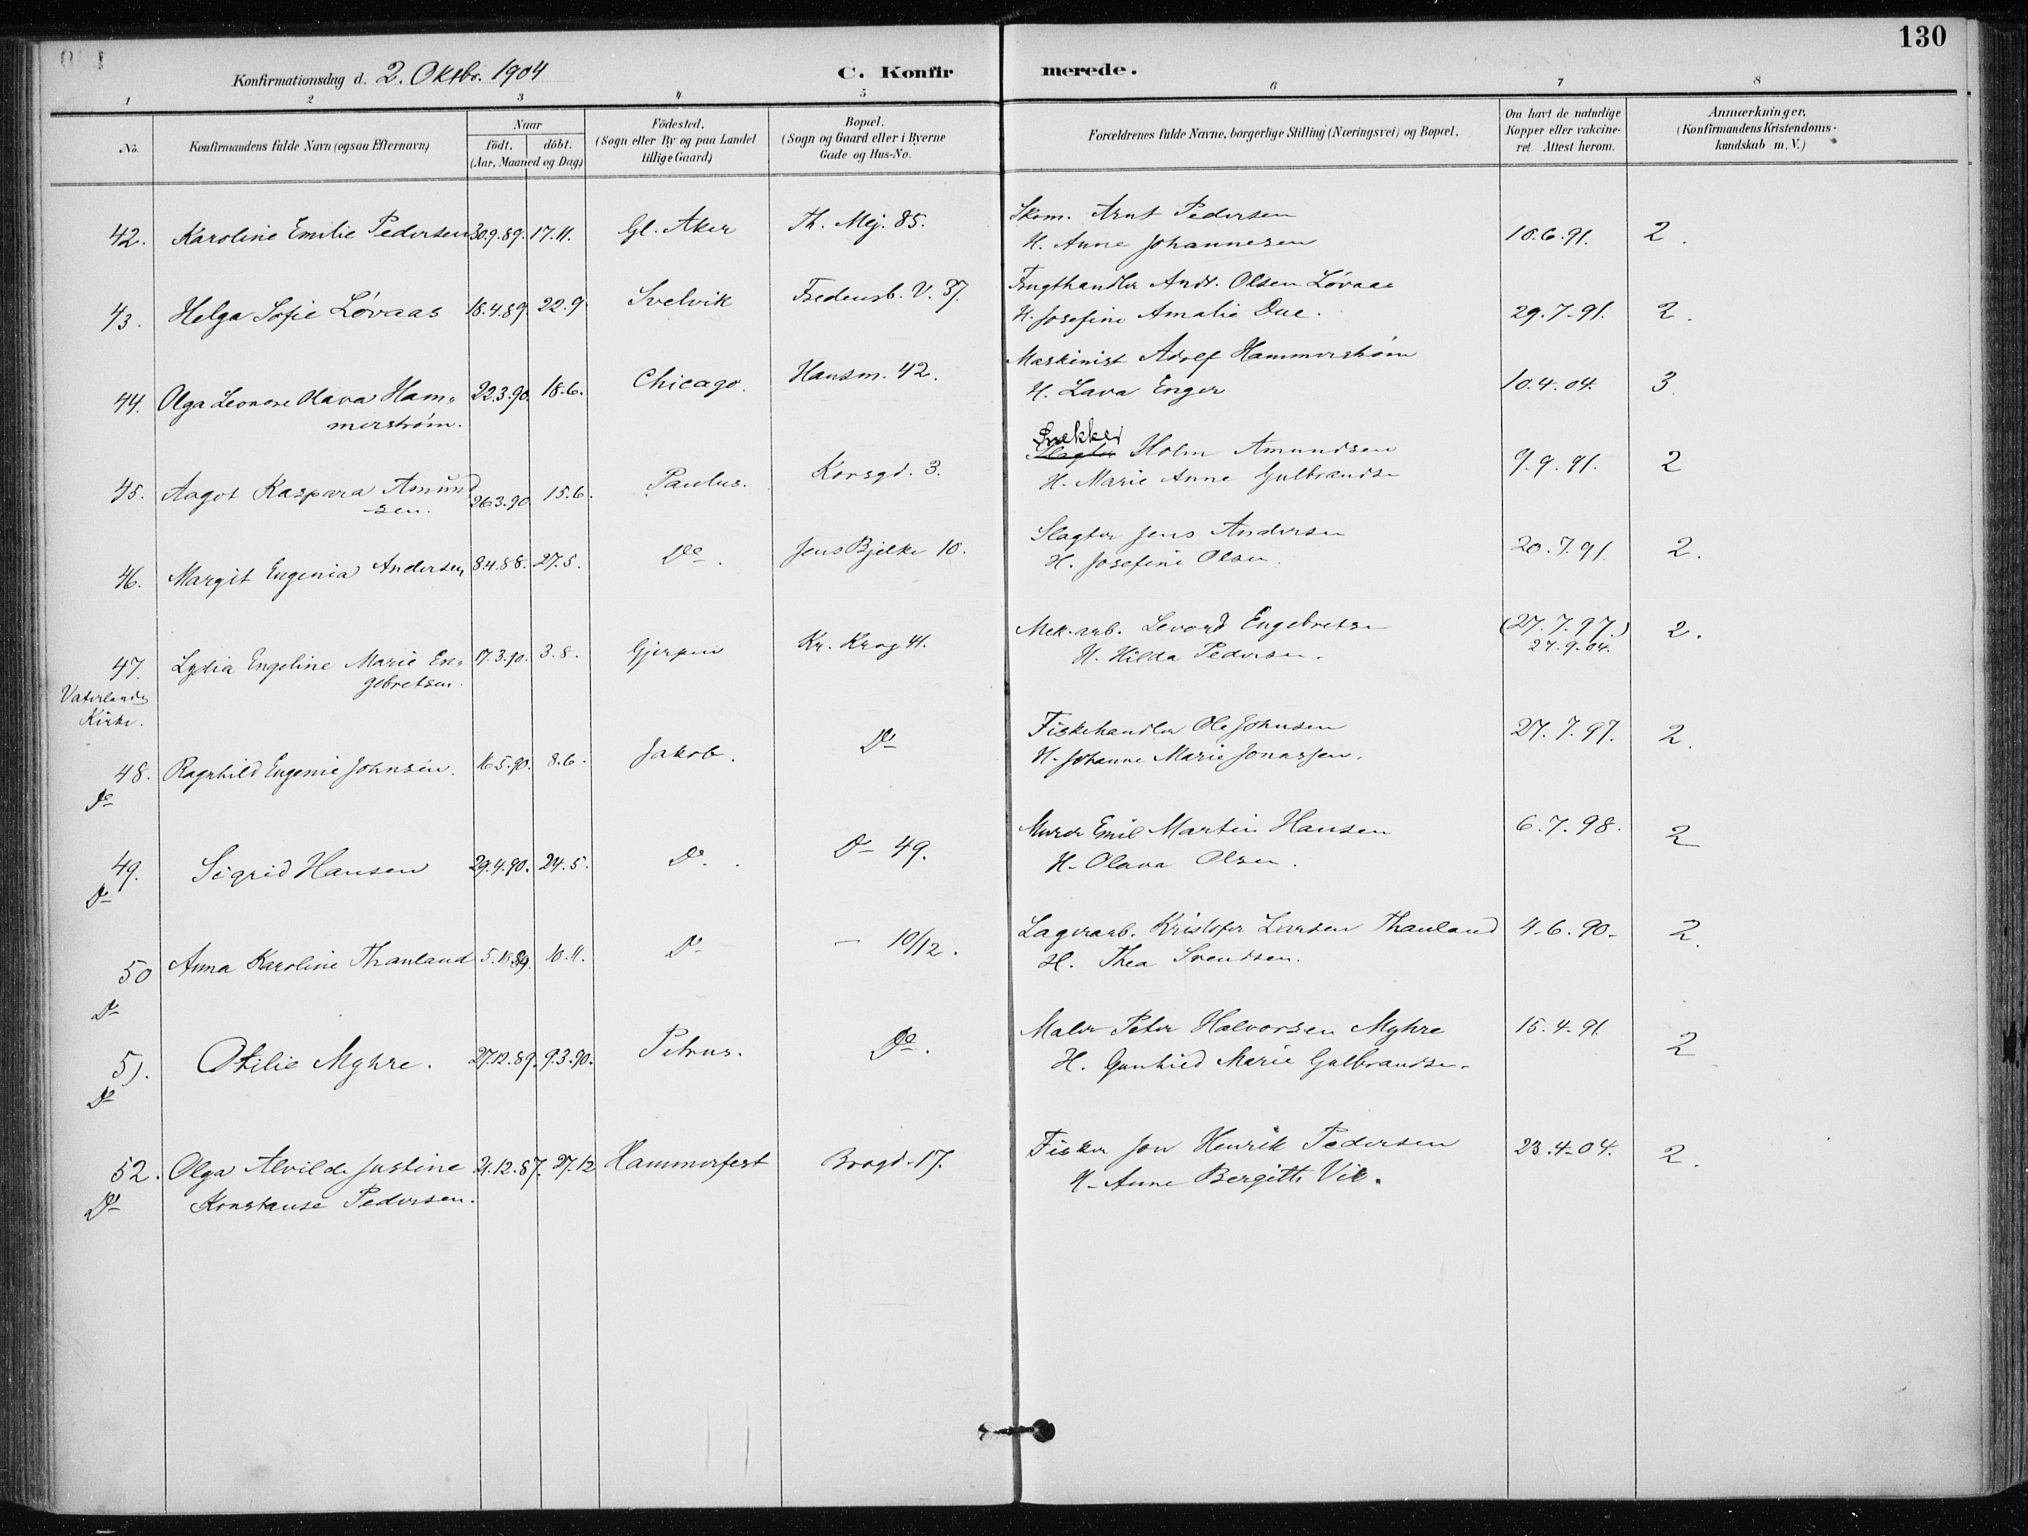 130
Konfirmationsdag d. 2. Oktbr. 1904
C. Konfirmerede.
1 2 3 4 5 6 7 8
No.
Konfirmandens fulde Navn (ogsaa Efternavn)
Naar
födt. döbt.
(Aar, Maaned og Dag)
Födested.
(Sogn eller By og paa Landet
tillige Gaard)
Bopæl.
(Sogn og Gaard eller i Byerne
Gade og Hus-No.
Forældrenes fulde Navne, borgerlige Stilling (Næringsvei) og Bopæl.
Om havt de naturlige
Kopper eller vakcine-
ret. Attest herom.
Anmærkninger,
(Konfirmandens Kristendoms-
kundskab m. V.)
42. Karoline Emilie Pedersen 30.9.89. 17.11. Gl. Aker Th. Mej. 85. Skom. Arnt Pedersen 10.6.91. 2.
H. Anne Johannesen
43. Helga Sofie Løvaas 18.4.89. 22.9. Svelvik Fredensb. V. 37. Frugthandler Andr. Olsen Løvaas 29.7.91. 2.
H. Josefine Amalie Due.
44. Olga Leonore Olava Ham- 22.3.90. 18.6. Chicago. Hausm. 42. Maskinist Adolf Hammerstrøm 10.4.04. 3.
merstrøm. H. Lava Enger
45. Aagot Kaspara Amund 26.3.90 15.6. Paulus. Korsgd. 3. Snekker Slagter Holm Amundsen 9.9.91. 2
sen. H. Marie Anne Gulbrandsn
46. Margit Eugenia Andersen 8.4.88. 27.5. Do. Jens Bjelke 10. Slagter Jens Andersen 20.7.91. 2.
H. Josefine Olsen.
47. Lydia Engeline Marie En- 17.3.90. 3.8. Gjerpen Kr. Krog 41. Mek. arb. Levord Engebretsn (27.7.97.) 2.
gebretsen. H. Hilda Pedersen. 27.9.04.
Vaterlands
Kirke.
48. Ragnhild Eugenie Johnsen. 16.5.90. 8.6. Jakob. Do Fiskehandler Ole Johnsen 27.7.97. 2.
Do H. Johanne Marie Jonassen.
49. Sigrid Hansen 29.4.90. 24.5. Do. Do 49. Murer Emil Martin Hansen 6.7.98. 2
Do H. Olava Olsen.
50 Anna Karoline Thanland 5.10.89. 10.11. Do - 10/12. Lagerarb. Kristofer Larsen Thanland 4.6.90. 2.
Do H. Thea Svendsen.
51. Otilie Myhre. 27.12.89. 9.3.90. Petrus. Do. Maler Peter Halvorsen Myhre 15.4.91 2
Do H. Gunhild Marie Gulbrandsn.
52. Olga Alvilde Justine 21.12.87. 27.12 Hammerfest Brogd. 17. Fisker Jon Henrik Pedersen 23.4.04. 2.
Do Konstanse Pedersen. H. Anne Bergitte Vik.